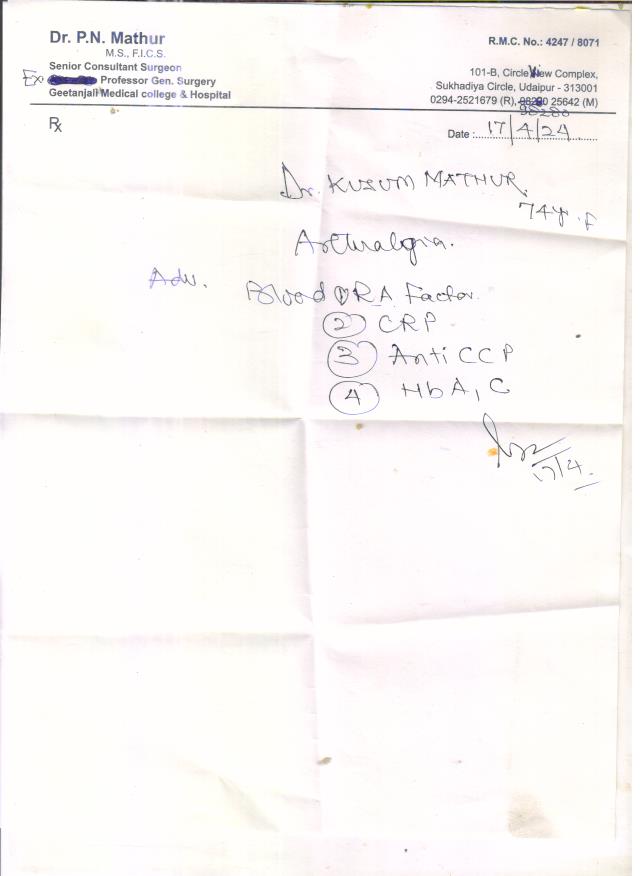 Dr. P.N. Mathur
M.S., F.I.C.S.
Senior Consultant Surgeon
Ex. Professor Gen. Surgery
Geetanjali Medical college & Hospital
R.M.C. No.: 4247 / 8071
101-B, Circle View Complex,
Sukhadiya Circle, Udaipur - 313001
0294-2521679 (R), 98280 25642 (M)
Rx
Date : 17/4/24
Dr. KUSUM MATHUR.
74y. F
Arthralgia.
Adv. Blood ① RA Factor.
② CRP
③ Anti CCP
④ HbA1C
17/4.